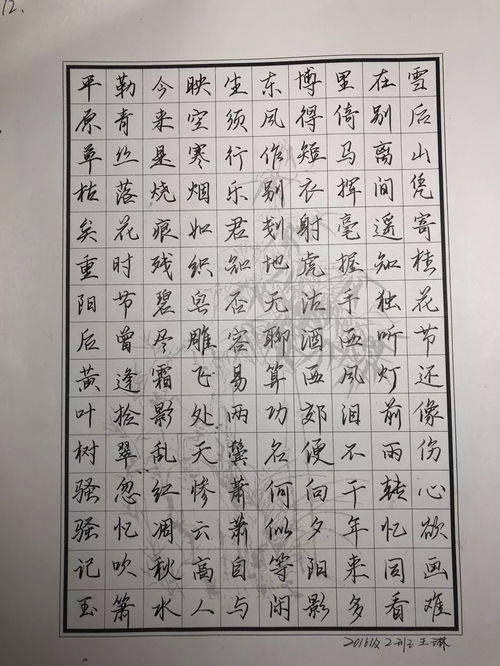 12.
平原草枯矣重阳后黄叶树骚骚记玉
勒青丝落花时节曾逢拾翠忽忆吹箫
今来是烧痕残碧尽霜影乱红凋秋水
映空寒烟如织皂雕飞处天惨云高人
生须行乐君知否容易两鬓萧萧自与
东风作别划地无聊算功名何似等闲
博得短衣射虎沽酒西郊便向夕阳影
里倚马挥毫握手西风泪不干年来多
在别离间遥知独听灯前雨转忆同看
雪后山凭寄桂花节还像伤心欲画难
2016级 王琳